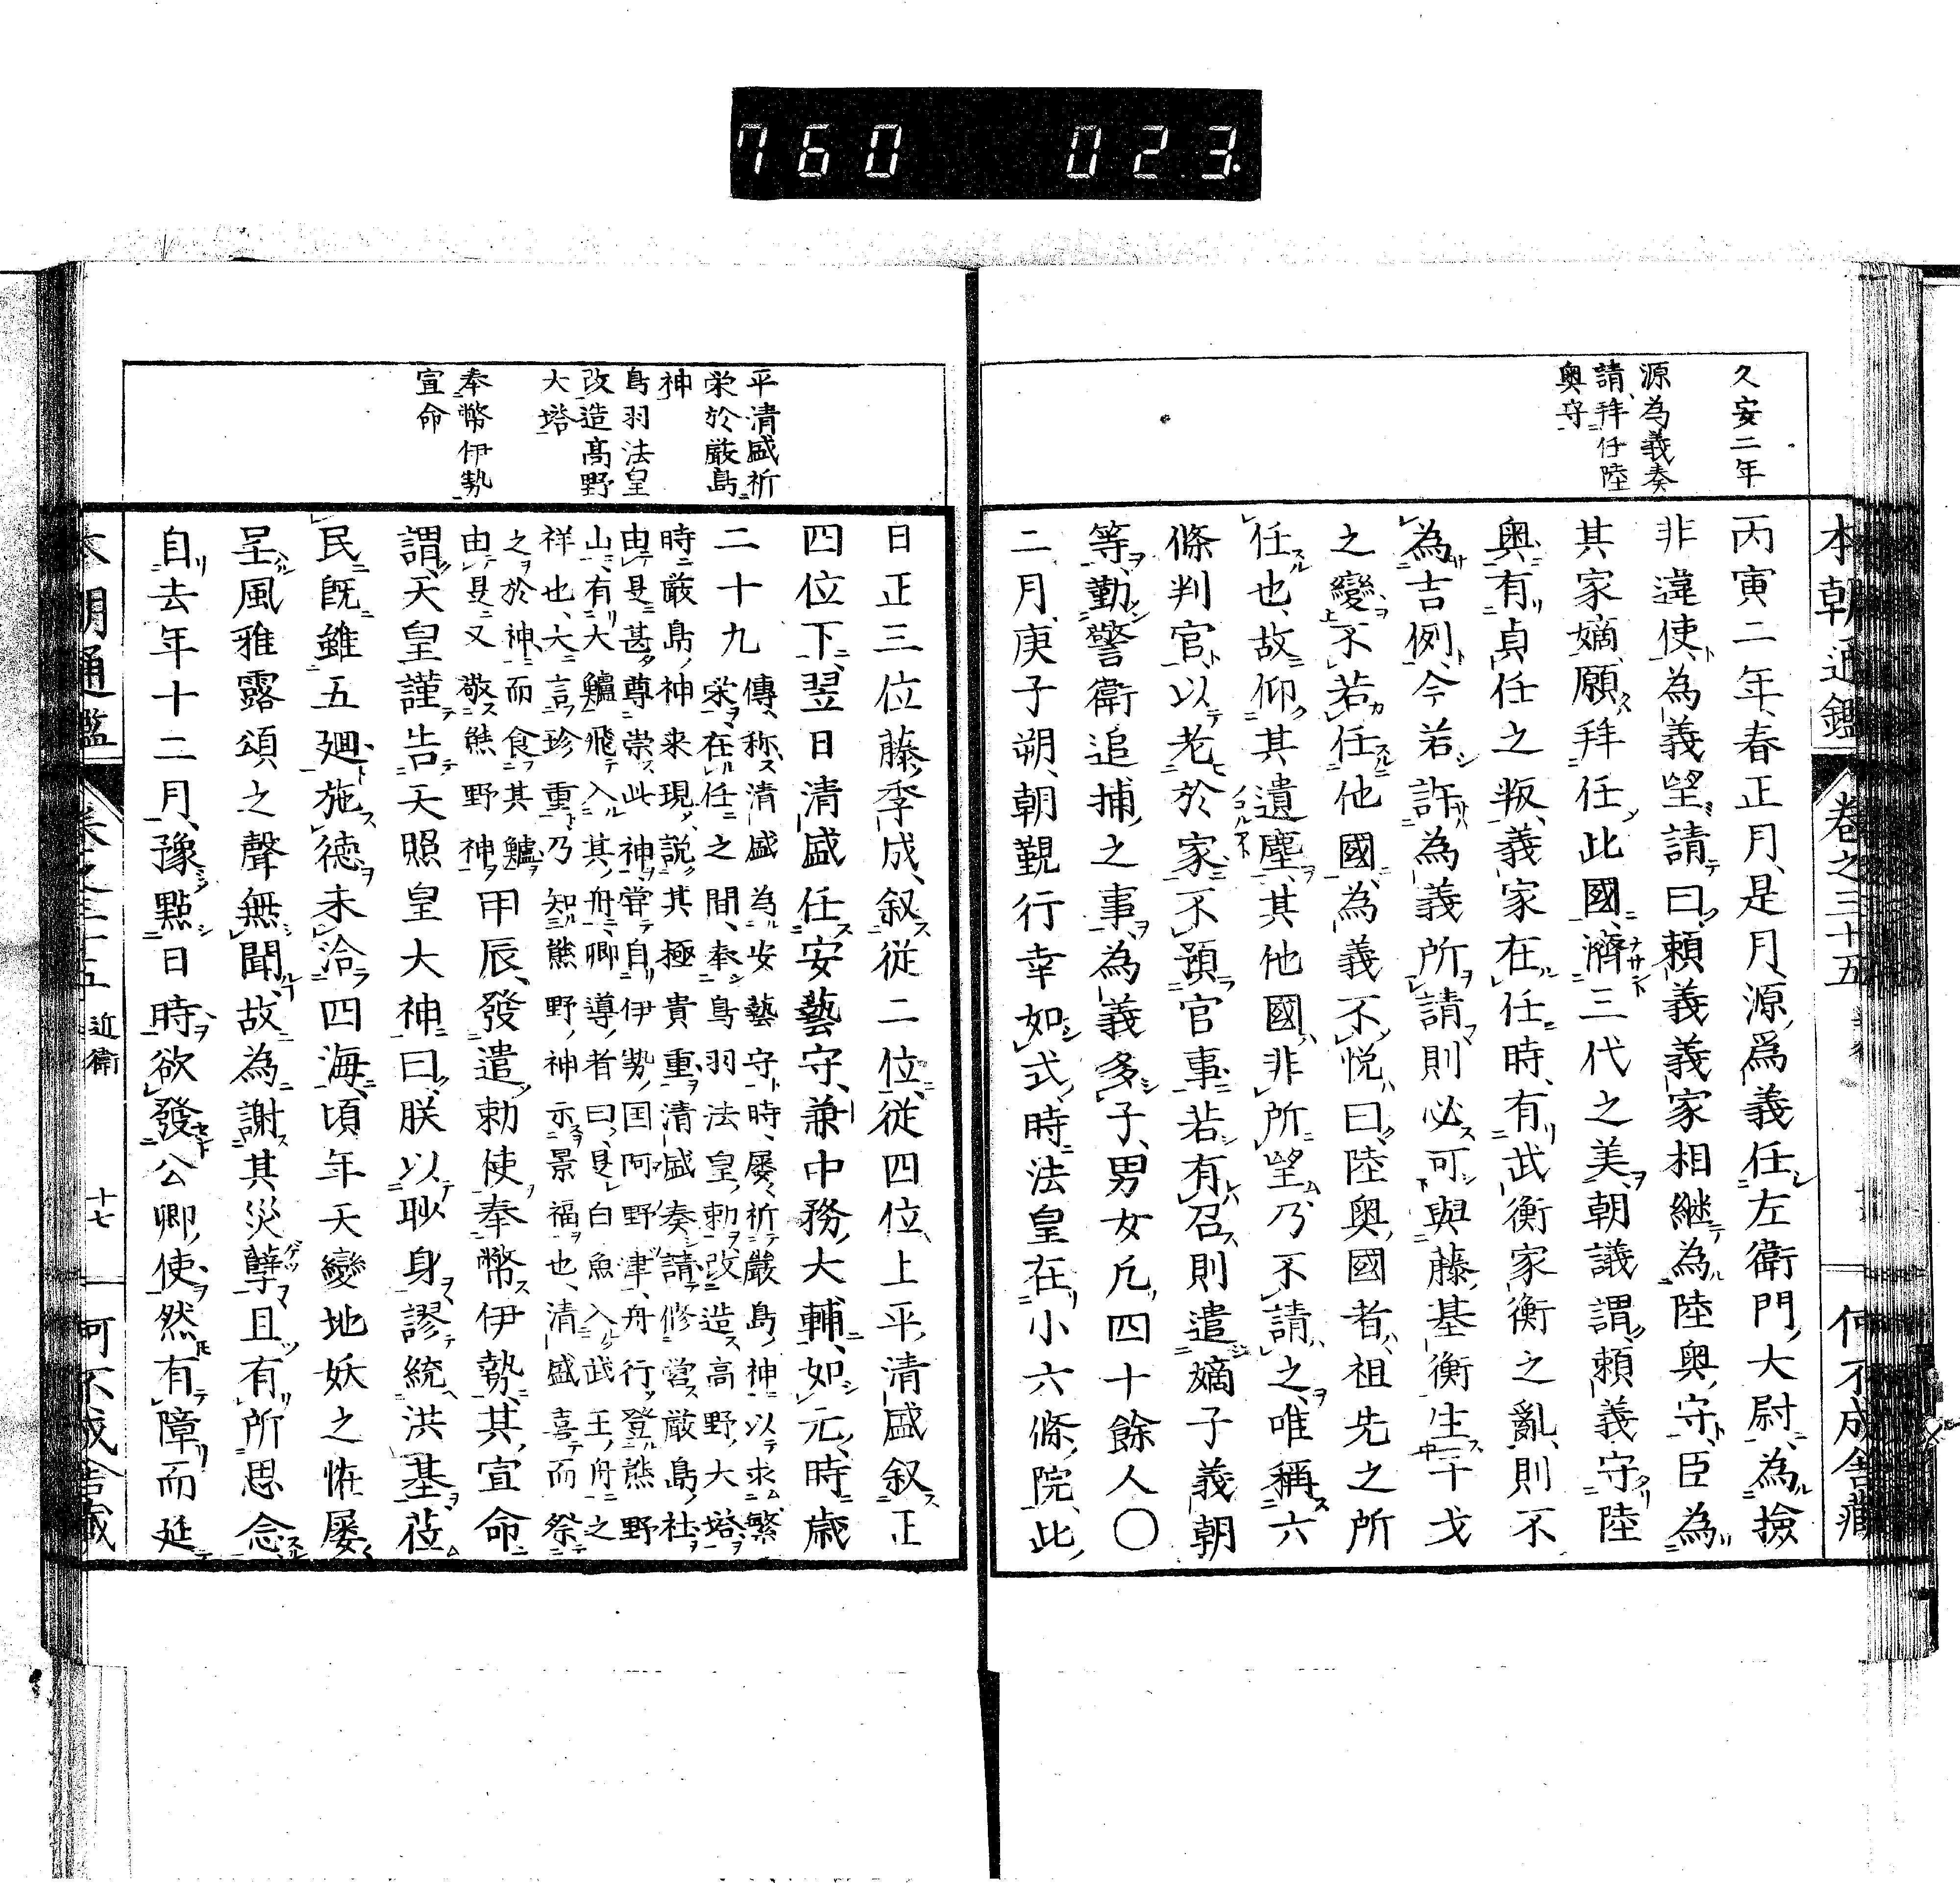 760 023
久安二年
源為義奏
請拜任陸
奥守
本朝通鑑 卷之三十五
何不成舎藏
丙寅二年春正月是月源爲義任左衛門大尉為撿
非違使為義望請曰頼義義家相継為陸奥守臣為
其家嫡願拜任此國濟三代之美朝議謂頼義守陸
奥有貞任之叛義家在任時有武衡家衡之亂則不
為吉例今若許為義所請則必可與藤基衡生干戈
之變不若任他國為義不悦曰陸奥國者祖先之所
任也故仰其遺塵其他國非所望乃不請之唯稱六
條判官以老於家不預官事若有召則遣嫡子義朝
等勤警衛追捕之事為義多子男女凡四十餘人〇
二月庚子朔朝覲行幸如式時法皇在小六條院此
平清盛祈
栄於厳島
神
鳥羽法皇
改造髙野
大塔
奉幣伊勢
宣命
日正三位藤季成叙従二位従四位上平清盛叙正
四位下翌日清盛任安藝守兼中務大輔如元時歳
二十九
傳称清盛為安藝守時屡祈嚴島神以求繁
栄在任之間奉鳥羽法皇勅改造高野大塔
時厳島神来現説其極貴重清盛奏請修営厳島社
由是甚尊崇此神嘗自伊勢国阿野津舟行登熊野
山有大鱸飛入其舟卿導者曰是白魚入武王舟之
祥也大言珍重乃知熊野神示景福也清盛喜而祭
之於神而食其鱸
由是又敬熊野神
甲辰發遣勅使奉幣伊勢其宣命
謂天皇謹告天照皇大神曰朕以耿身謬統洪基莅
民既雖五廻施徳未洽四海頃年天變地妖之恠屡
呈風雅露頌之聲無聞故為謝其災孽且有所思念
自去年十二月豫點日時欲發公卿使然有障而延
本朝通鑑 卷之三十五 近衛 十七 何不成舎藏